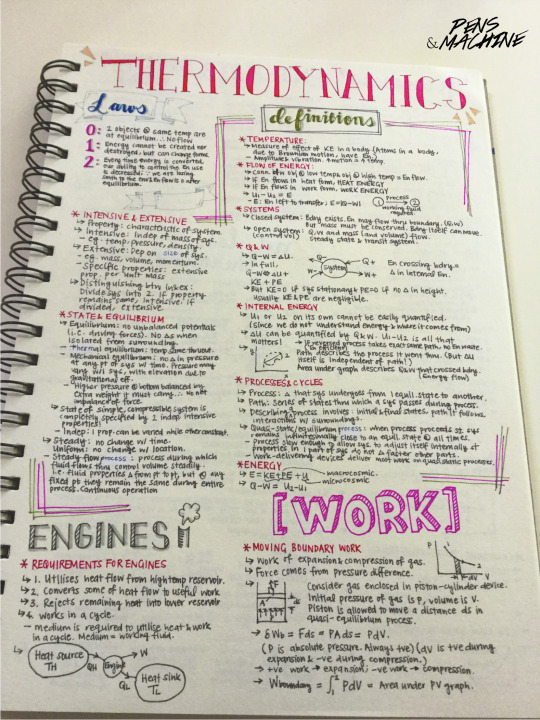 PENS
&MACHINE
THERMODYNAMICS
Laws
0: 2 objects @ same temp are
at equilibrium ∴ No flow
1: Energy cannot be created nor
destroyed, but can change forms.
2: Every time energy is converted,
our ability to control the En use
is decreased
equilibrium.
* INTENSIVE & EXTENSIVE
↳ Property: characteristic of system.
↳ Intensive: Indep of mass of sys.
- eg. temp, pressure, density.
↳ Extensive: Dep on size of sys.
- eg. mass, volume, momentum.
↳ Specific properties: extensive
prop. per unit mass
↳ Distinguishing btw in&ex:
Divide sys into 2. If property
remains same, intensive. If
divided, extensive.
* STATE & EQUILIBRIUM
↳ Equilibrium: no unbalanced potentials
(i.e. driving forces). No Δs when
isolated from surrounding.
- thermal equilibrium: temp same thruout.
- Mechanical equilibrium: no Δ in pressure
at any pt of sys w/ time. Pressure may
vary w/i sys, with elevation due to
gravitational eff.
- Higher pressure @ bottom balanced by
extra weight it must carry. ∴ No net
imbalance of force.
↳ State of simple, compressible system is
completely specified by 2 indep intensive
properties.
- Indep: 1 prop can be varied while other constant.
↳ Steady: no change w/ time.
Uniform: no change w/ location.
↳ Steady-flow process: process during which
fluid flows thru control volume steadily.
i.e. fluid properties Δ from pt to pt, but @ any
fixed pt they remain the same during entire
process. Continuous operation
definitions
* TEMPERATURE:
↳ Measure of effect of KE in a body (Atoms in a body,
due to Brownian motion, have En.)
Amplitude & vibration. Emotion ∝ Δ temp.
* FLOW OF ENERGY:
↳ Conn. btw obj @ low temp & obj @ high temp = En flow.
↳ If En flows in heat form, HEAT ENERGY
↳ If En flows in work form, WORK ENERGY
↳ U₁-U₂ = E
process
① → ②
working fluid
required
* SYSTEMS
↳ Closed system: Bdry exists. En may flow thru boundary. (Q,W)
But mass must be conserved. Bdry itself can move.
↳ Open system: Q, W and mass (and volume) flow.
(control vol) Steady state & transit system.
* Q & W
↳ Q-W = ΔU.
↳ in full,
Q-W = ΔU +
KE + PE
Q+
Q-
W-
W+
system
En crossing bdry =
Δ in internal En.
↳ But KE=0 if sys stationary & PE=0 if no Δ in height.
usually KE & PE are negligible.
* INTERNAL ENERGY
↳ U₁ or U₂ on its own cannot be easily quantified.
(since we do not understand energy & where it comes from)
↳ ΔU can be quantified by Q&W ∴ U₁-U₂ is all that
matters!
↳ If reversed process takes exact same path, no En made.
Path describes the process it went thru. (But ΔU
itself is independent of path!)
Area under graph describes Q/W that crossed bdry
(Energy flow)
* PROCESSES & CYCLES
↳ Process: Δ that sys undergoes from 1 equil. state to another.
↳ Path: Series of states thru which a sys passes during process.
↳ Describing process involves: initial & final states, path it follows,
interactions w/ surrounding.
↳ Quasi-static/equilibrium process: when process proceeds st sys
remains infinitesimally close to an equil. state @ all times.
- Process slow enough to allow sys to adjust itself internally st
properties in 1 part of sys do not Δ faster other parts.
- Work-delivering devices deliver most work on quasi-static processes.
* ENERGY
↳ E = KE + PE + U
macroscopic.
microscopic
↳ Q-W = U₂-U₁
ENGINES
* REQUIREMENTS FOR ENGINES
↳ 1. Utilises heat flow from high temp reservoir.
↳ 2. Converts some of heat flow to useful work
↳ 3. Rejects remaining heat into lower reservoir
↳ 4. Works in a cycle.
- medium is required to utilise heat & work
in a cycle. Medium = working fluid.
Heat source
TH
QH
Engine
W
QL
Heat sink
TL
[WORK]
* MOVING BOUNDARY WORK
↳ Work of expansion & compression of gas.
↳ Force comes from pressure difference.
P
dV
V
F
A
P
Consider gas enclosed in piston-cylinder device.
Initial pressure of gas is P, volume is V.
Piston is allowed to move a distance ds in
quasi-equilibrium process.
→ δWb = Fds = PAds = PdV.
(P is absolute pressure. Always +ve) (dV is +ve during
expansion & -ve during compression.)
→ +ve work → expansion; -ve work → compression.
↳ Wboundary = ∫₁² PdV = Area under PV graph.